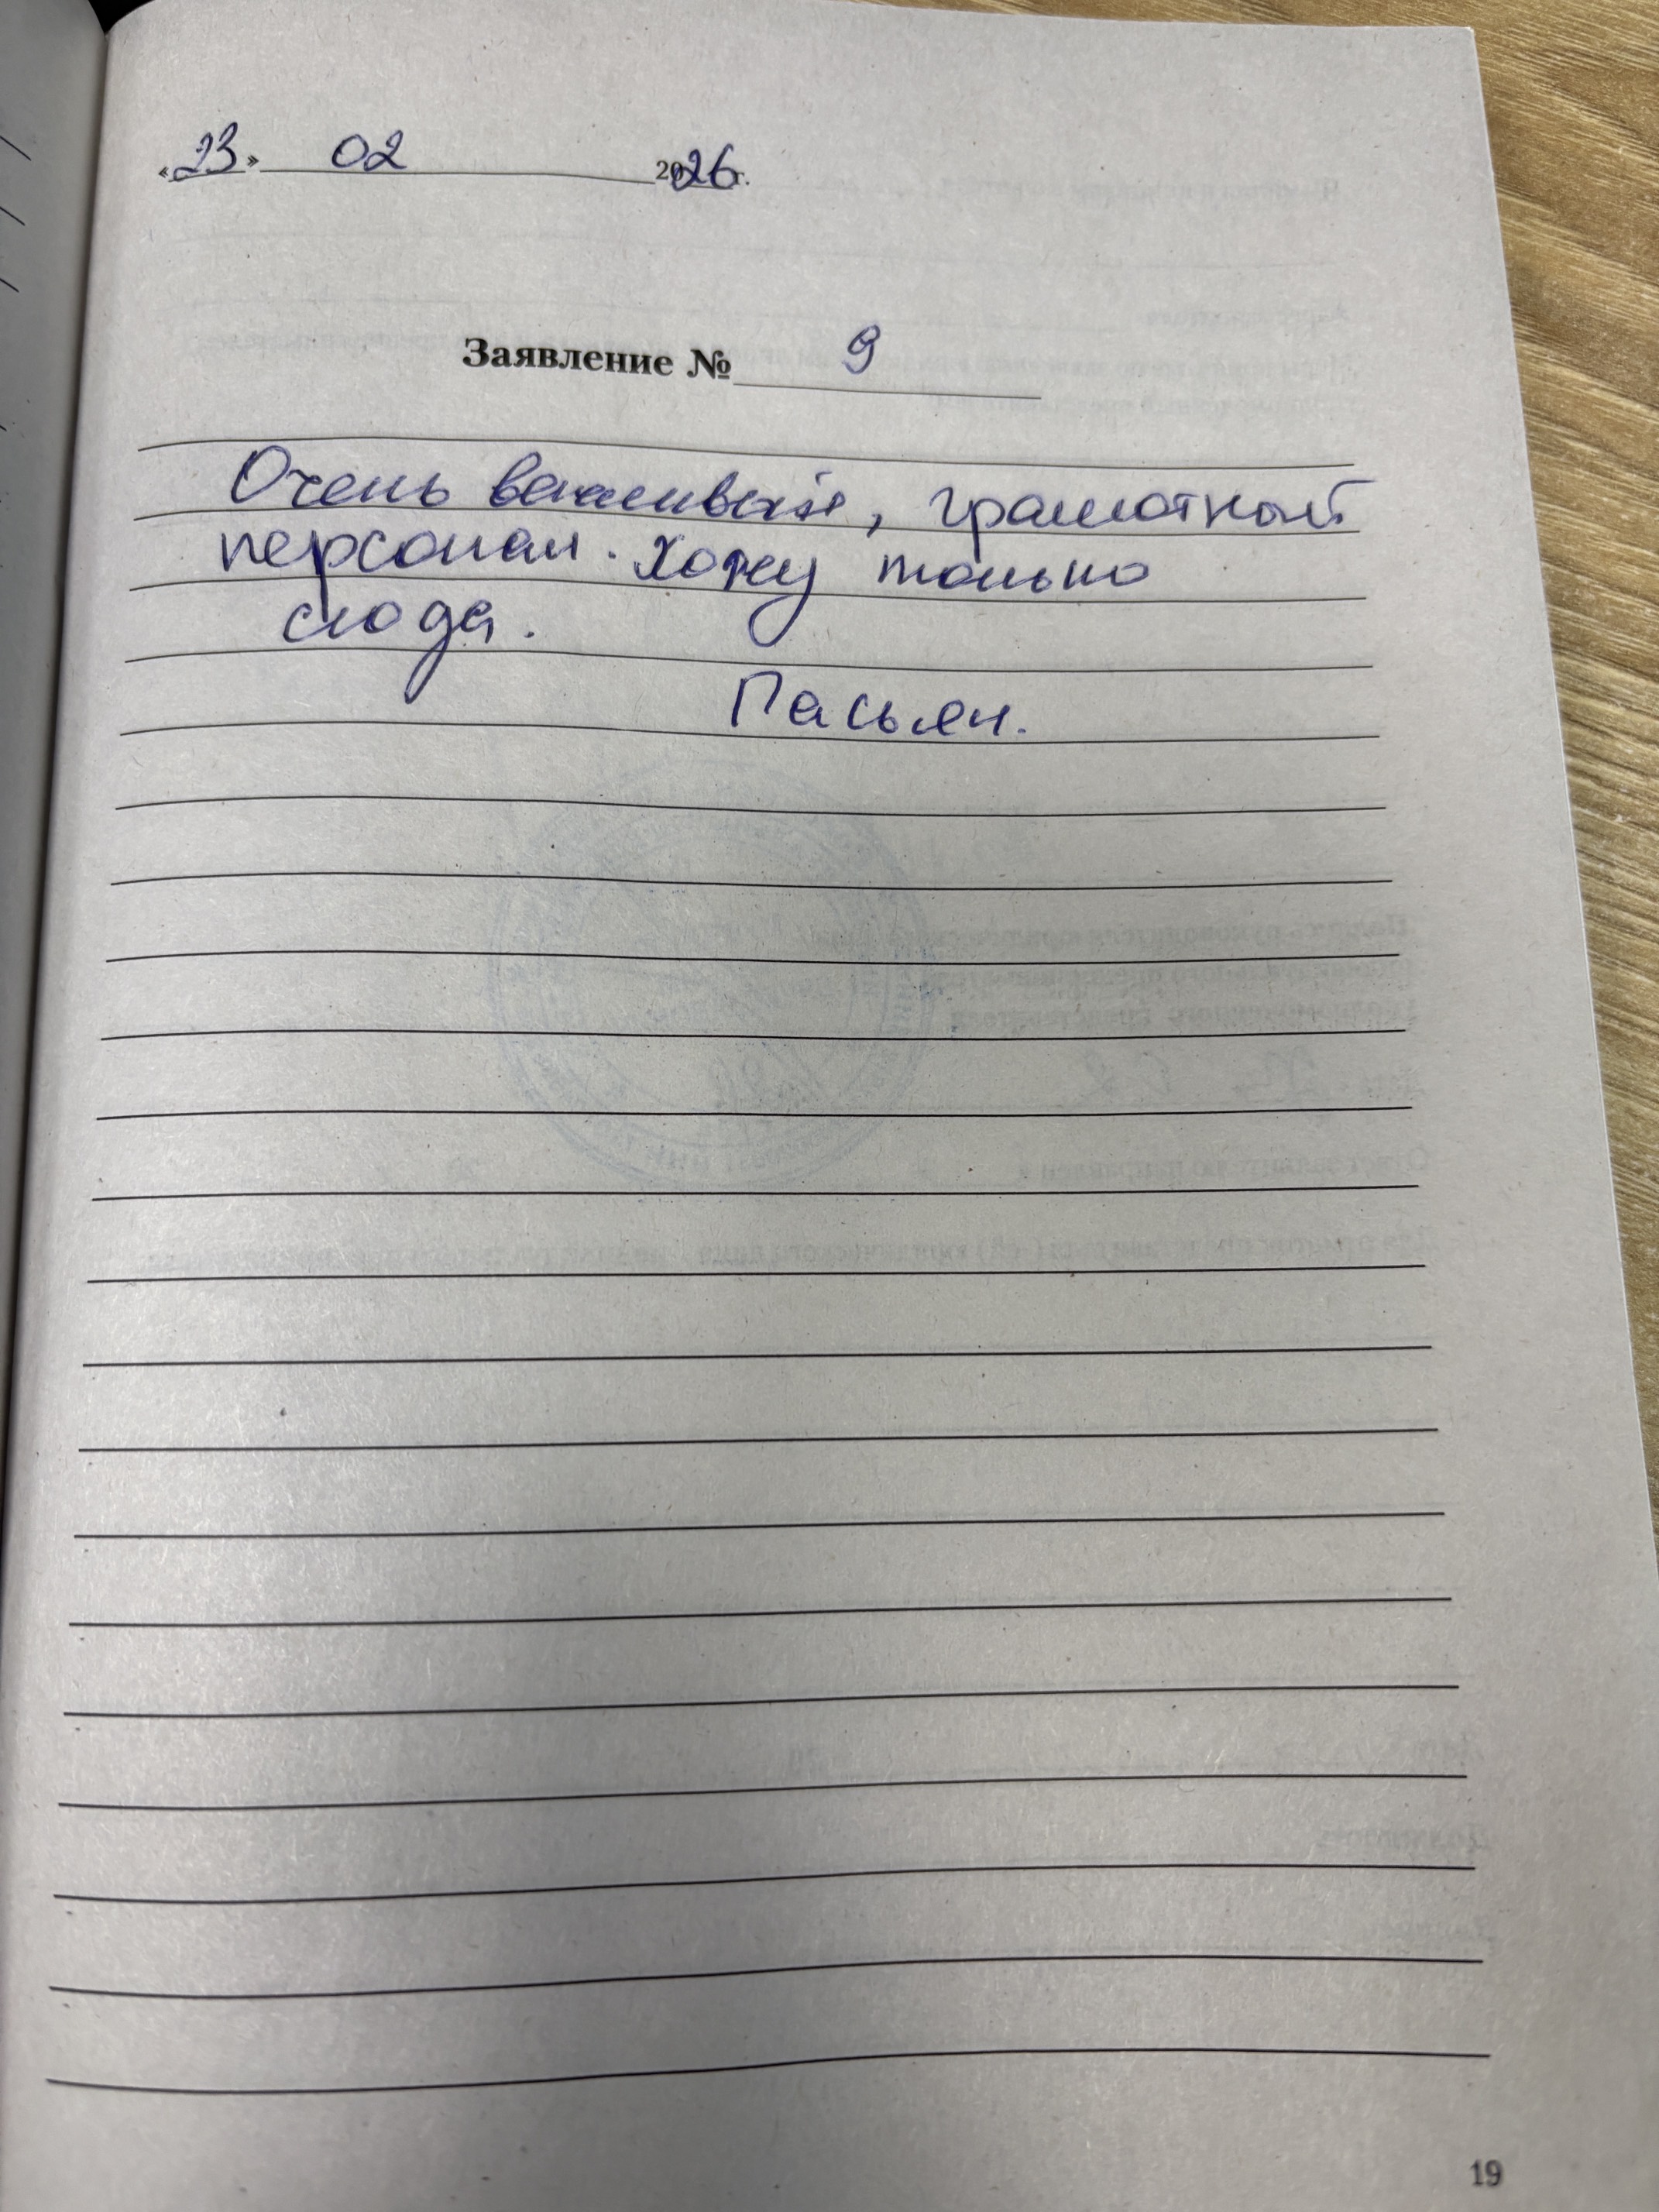 «23» 02 2026 г.
Заявление № 9
Очень вежливый, грамотный
персонал. Хожу только
сюда.
Пасьян.
19